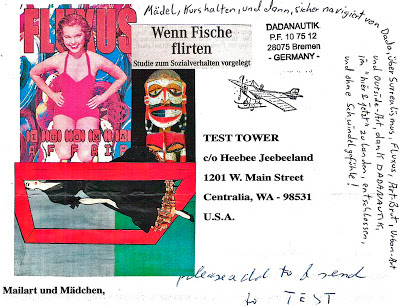 Mädel, Kurs halten, und dann, sicher navigiert von Dada, über Surrealismus, Fluxus, Art Brut, Urban-Art
und Outside-Art, dank DADANAUTIK,
im "hier & jetzt" zu landen, entschlossen,
und ohne Schwindelgefühle!
FLUXUS
AFFAIR
Wenn Fische
flirten
Studie zum Sozialverhalten vorgelegt
DADANAUTIK
P.F. 10 75 12
28075 Bremen
- GERMANY -
TEST TOWER
c/o Heebee Jeebeeland
1201 W. Main Street
Centralia, WA - 98531
U.S.A.
please add to & send
to TEST
Mailart und Mädchen,